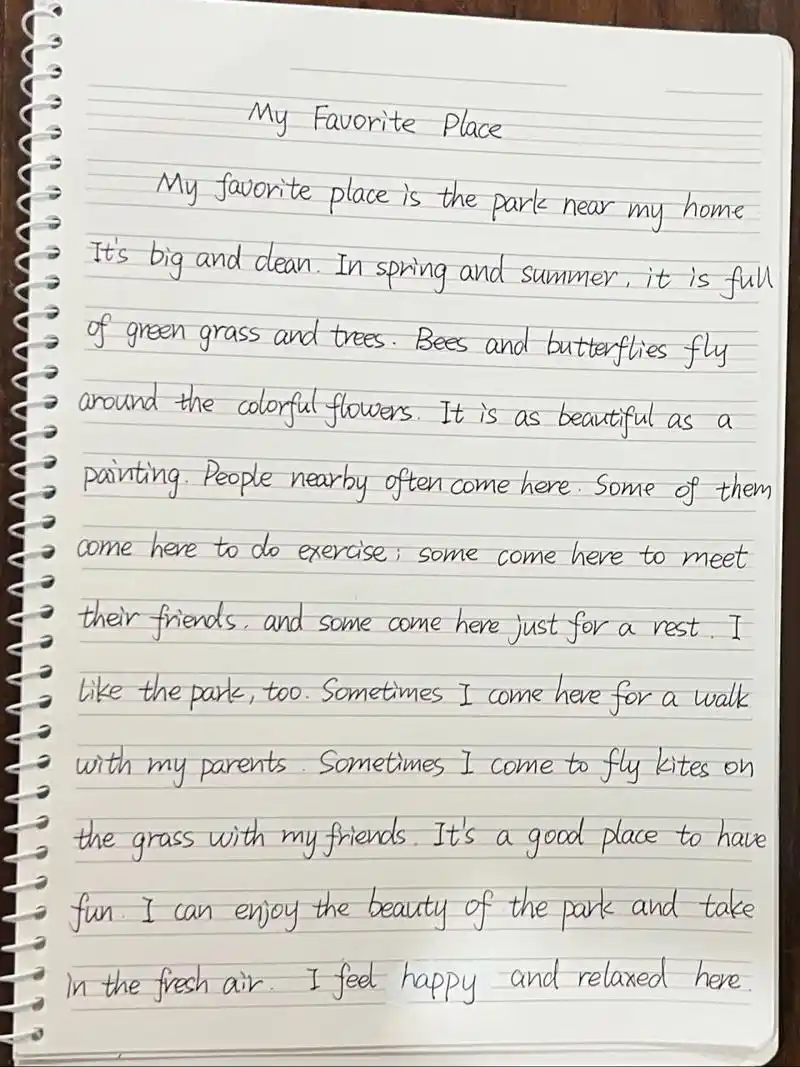 My Favorite Place
My favorite place is the park near my home
It's big and clean. In spring and summer, it is full
of green grass and trees. Bees and butterflies fly
around the colorful flowers. It is as beautiful as a
painting. People nearby often come here. Some of them
come here to do exercise; some come here to meet
their friends, and some come here just for a rest. I
like the park, too. Sometimes I come here for a walk
with my parents. Sometimes I come to fly kites on
the grass with my friends. It's a good place to have
fun. I can enjoy the beauty of the park and take
in the fresh air. I feel happy and relaxed here.